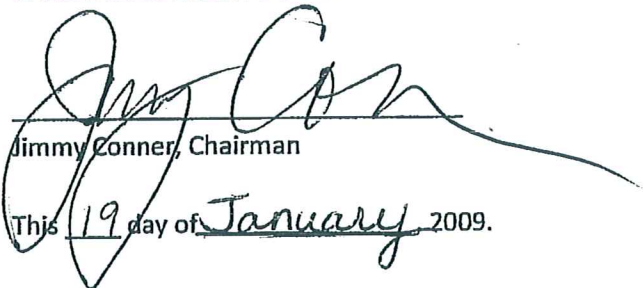 Jimmy Conner, Chairman
This 19 day of January, 2009.